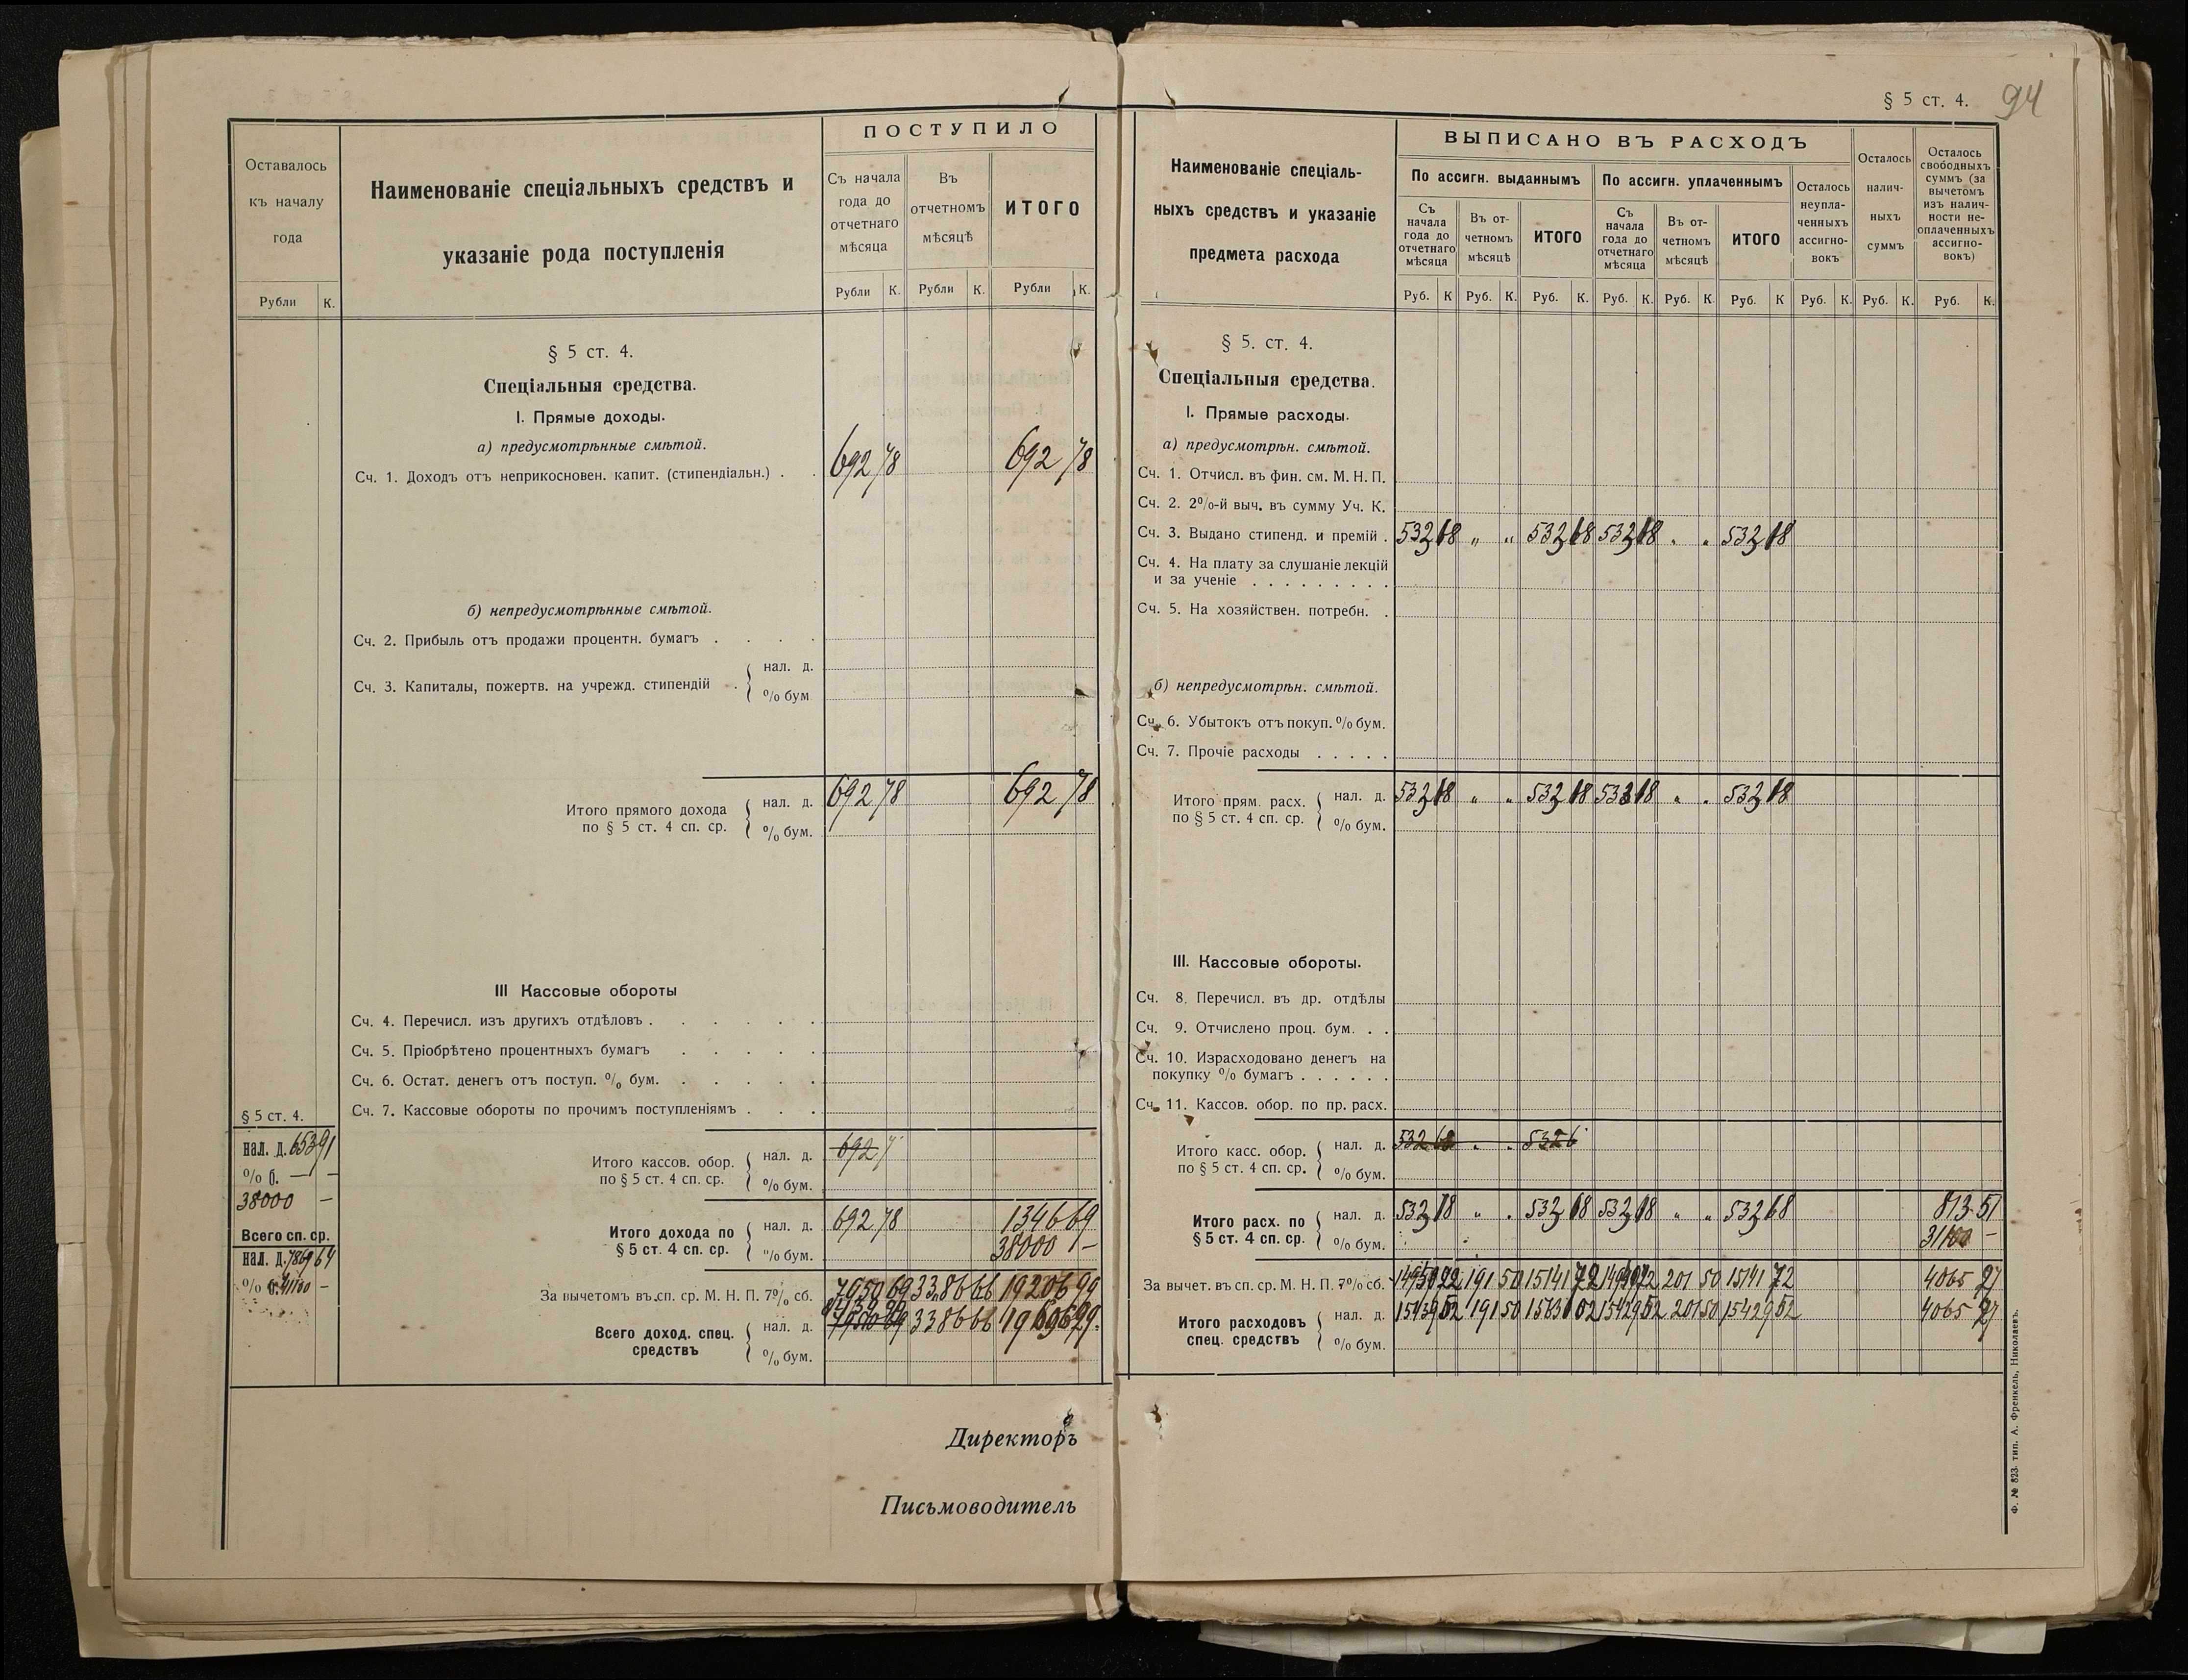 § 5 ст. 4.
94
Оставалось
къ началу
года
Рубли К.
Наименованіе спеціальныхъ средствъ и
указаніе рода поступленія
ПОСТУПИЛО
Съ начала
года до
отчетнаго
мѣсяца
Въ
отчетномъ
мѣсяцѣ
ИТОГО
Рубли К. Рубли К. Рубли К.
§ 5 ст. 4.
Спеціальныя средства.
I. Прямые доходы.
а) предусмотрѣнные смѣтой.
Сч. 1. Доходъ отъ неприкосновен. капит. (стипендіальн.) . . 692 78 692 78
б) непредусмотрѣнные смѣтой.
Сч. 2. Прибыль отъ продажи процентн. бумагъ . . . .
Сч. 3. Капиталы, пожертв. на учрежд. стипендій . нал. д.
% бум
Итого прямого дохода
по § 5 ст. 4 сп. ср.
нал. д. 692 78 692 78
% бум.
III Кассовые обороты
Сч. 4. Перечисл. изъ другихъ отдѣловъ . . . . .
Сч. 5. Пріобрѣтено процентныхъ бумагъ . . . . .
Сч. 6. Остат. денегъ отъ поступ. % бум. . . . . .
Сч. 7. Кассовые обороты по прочимъ поступленіямъ . . .
§ 5 ст. 4.
нал. д. 653 91
% б. — —
38000 —
Всего сп. ср.
нал. д. 7869 64
% б. 41100 —
Итого кассов. обор.
по § 5 ст. 4 сп. ср.
нал. д. 692 7
% бум.
Итого дохода по
§ 5 ст. 4 сп. ср.
нал. д. 692 78 1346 69
% бум. 38000 —
За вычетомъ въ сп. ср. М. Н. П. 7% сб. 7950 69 3386 66 19206 99
Всего доход. спец.
средствъ
нал. д. 3386 66
% бум.
Директоръ
Письмоводитель
Наименованіе спеціаль-
ныхъ средствъ и указаніе
предмета расхода
ВЫПИСАНО ВЪ РАСХОДЪ
По ассигн. выданнымъ
По ассигн. уплаченнымъ
Съ
начала
года до
отчетнаго
мѣсяца
Въ от-
четномъ
мѣсяцѣ
ИТОГО
Съ
начала
года до
отчетнаго
мѣсяца
Въ от-
четномъ
мѣсяцѣ
ИТОГО
Осталось
неупла-
ченныхъ
ассигно-
вокъ
Осталось
налич-
ныхъ
суммъ
Осталось
свободныхъ
суммъ (за
вычетомъ
изъ налич-
ности не-
оплаченныхъ
ассигно-
вокъ)
Руб. К Руб. К. Руб. К. Руб. К. Руб. К. Руб. К Руб. К. Руб. К. Руб. К.
§ 5. ст. 4.
Спеціальныя средства.
I. Прямые расходы.
а) предусмотрѣн. смѣтой.
Сч. 1. Отчисл. въ фин. см. М. Н. П.
Сч. 2. 2%-й выч. въ сумму Уч. К.
Сч. 3. Выдано стипенд. и премій . 532 18 „ „ 532 18 532 18 „ „ 532 18
Сч. 4. На плату за слушаніе лекцій
и за ученіе . . . . . . . . .
Сч. 5. На хозяйствен. потребн. .
б) непредусмотрѣн. смѣтой.
Сч. 6. Убытокъ отъ покуп. % бум.
Сч. 7. Прочіе расходы . . . . .
Итого прям. расх.
по § 5 ст. 4 сп. ср.
нал. д. 532 18 „ „ 532 18 533 18 „ „ 532 18
% бум.
III. Кассовые обороты.
Сч. 8. Перечисл. въ др. отдѣлы
Сч. 9. Отчислено проц. бум. . .
Сч. 10. Израсходовано денегъ на
покупку % бумагъ . . . . . .
Сч. 11. Кассов. обор. по пр. расх.
Итого касс. обор.
по § 5 ст. 4 сп. ср.
нал. д. 532 68 „ „ 532 6
% бум.
Итого расх. по
§ 5 ст. 4 сп. ср.
нал. д. 532 18 „ „ 532 18 532 18 „ „ 532 68 813 51
% бум.
За вычет. въ сп. ср. М. Н. П. 7% сб. 191 50 15141 72 201 50 15141 72 4065 27
Итого расходовъ
спец. средствъ
нал. д. 15439 52 191 50 15631 02 15429 52 201 50 15429 52 4065 27
% бум.
Ф. № 823. тип. А. Френкель, Николаевъ.